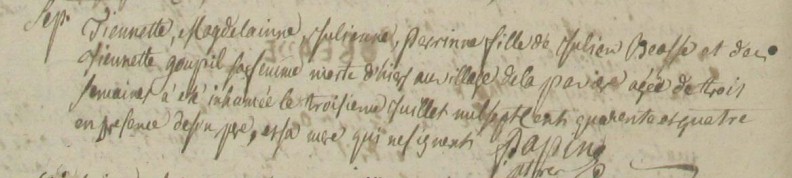 Sep. Tiennette, Magdelainne, Julienne, Perrinne fille de Julien Beasse et de
Tiennette goupil sa femme morte d'hier au village de la agée de trois
semaines á eté inhumée le troisieme Juillet mil sept cents quarente et quatre
en presence de son pere, et sa mere qui ne signent Papin